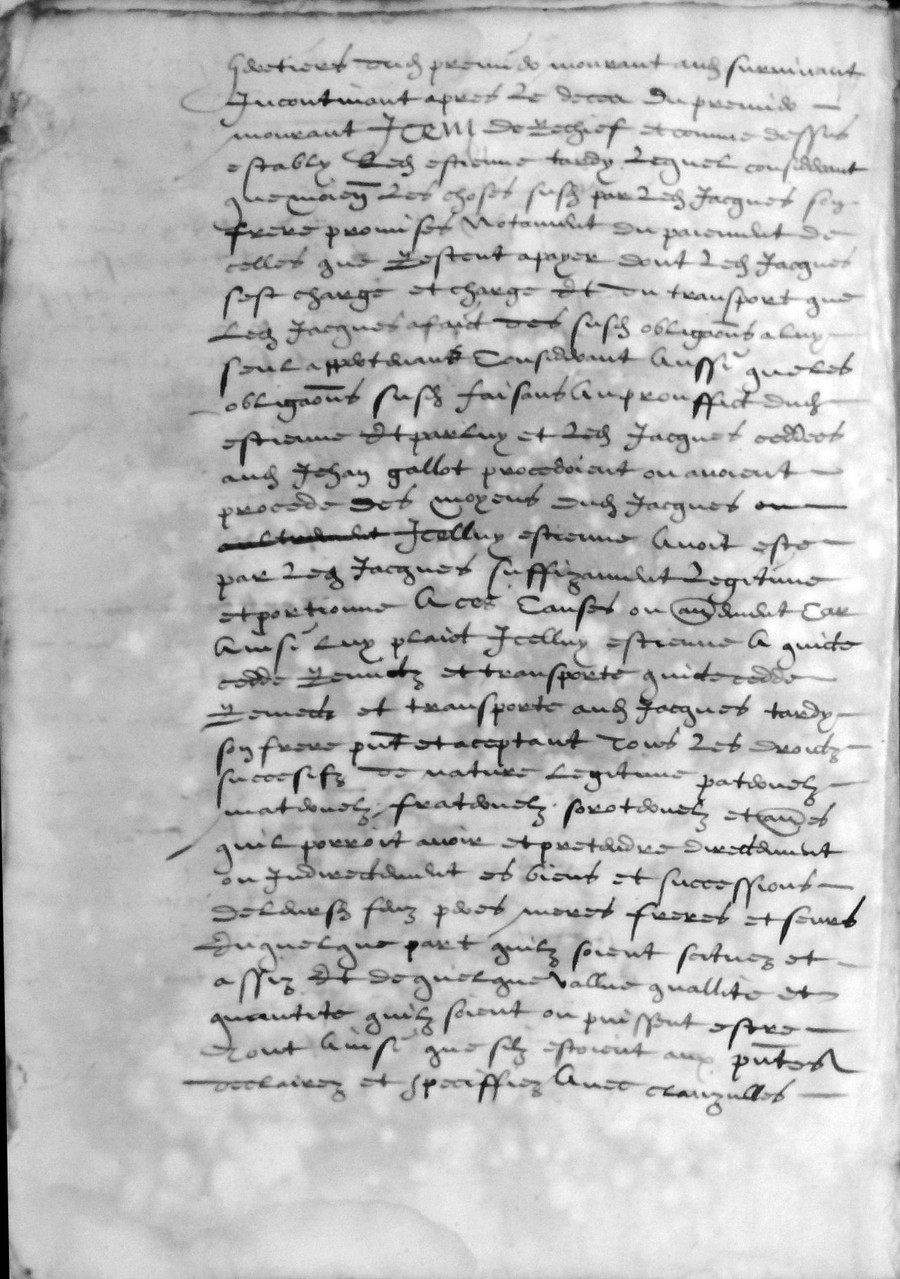 heretiers dud premier mourant aud survivant
Incontinant apres le deces du premier
mourant Item De Rechief et comme dessus
estably led estienne tardy lequel considerant
que moien les choses susd par led Jacques son
frere promises Notament du paiement de
celles que Restent apayer dont led Jacques
sest charge et charge Et du transport que
led Jacques afaict des susd obligaons a luy
seul appertenans Considerant Aussi que les
obligaons susd faisans Au prouffict dud
estienne Et par luy et led Jacques cedees
aud Jehan gallot procedoient ou avoient
procede des moyens dud Jacques ou
aultrement Icelluy estienne Avoit este
par led Jacques suffizamment legitime
et portionne A ces Causes ou aument Car
Ainsi luy plaict Icelluy estienne A quicte
cede Remectz et transporte quicte cedde
Remect et transporte aud Jacques tardy
son frere pnt et aceptant Tous les droictz
succesifz de nature legitime paternelz
maternelz fraternelz sororternelz et aues
quil porroit avoir et pretendre directement
ou Indirectement es biens et successions
de leursd feuz peres meres freres et seurs
En quelque part quilz soient scituez et
assiz Et de quelque vallue quallite et
quantite quilz soient ou puissent estre
Tout Ainsi que silz estoient aux pntes
declairez et speciffiez Avec clauzulles